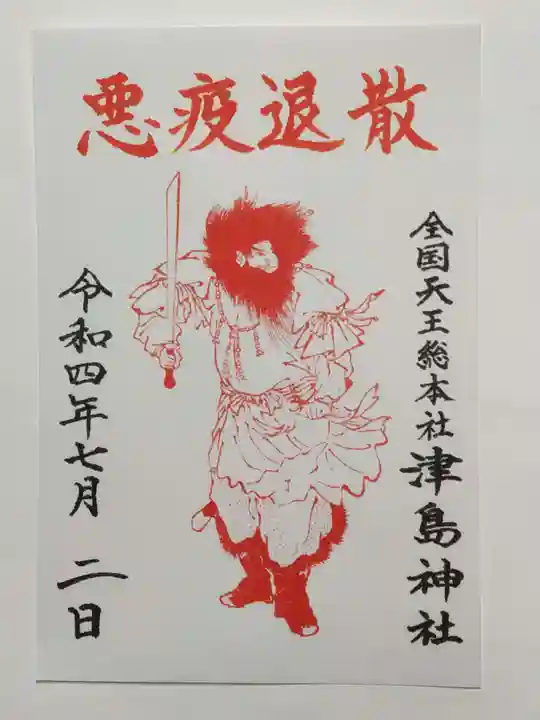 悪疫退散
全国天王総本社 津島神社
令和四年七月 二日